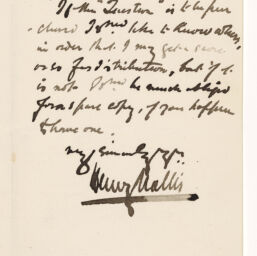 If the Question is to be pur
-chased I shd like to know where,
in order that I may get a score
or so for distribution, but if it
is not I shd be much obliged
for a spare copy, if you happen
to have one.
very Sincerely yrs.
Henry Wallis